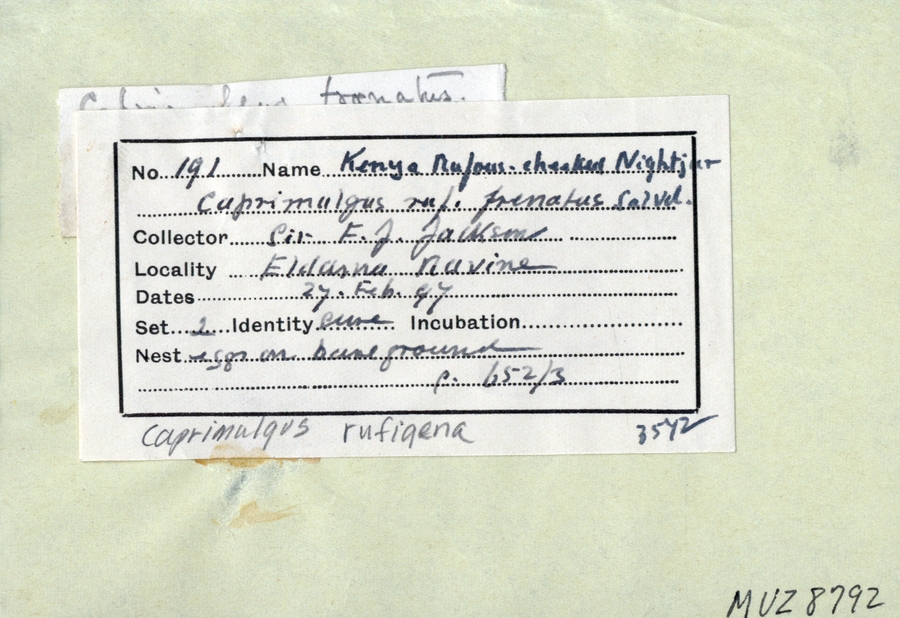 frenatus.
No. 191 Name Kenya Rufous-cheeked Nightjar
Caprimulgus ruf. frenatus Salvd.
Collector Sir F. J. Jackson
Locality Eldama Ravine
Dates 27. Feb. 97
Set 2 Identity sure Incubation
Nest eggs on bare ground
p. 652/3
Caprimulgus rufigena
3572
MUZ 8792